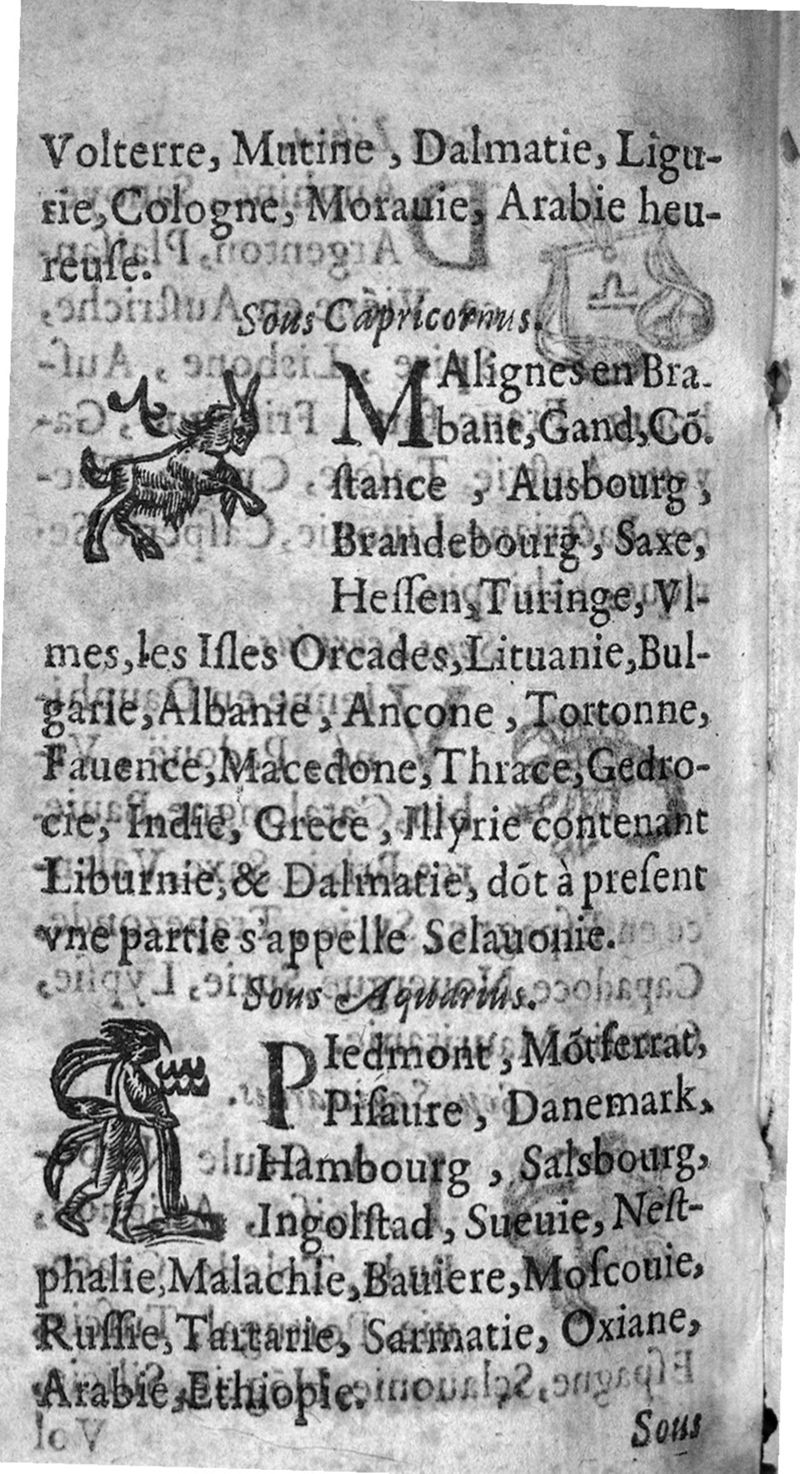 Volterre, Mutine , Dalmatie, Ligu-
rie, Cologne, Morauie, Arabie heu-
reuſe.
Sous Capricornus.
MAlignes en Bra-
bant, Gand, Cõ-
ſtance , Ausbourg ,
Brandebourg , Saxe,
Heſſen, Turinge, Vl-
mes, les Iſles Orcades, Lituanie, Bul-
garie, Albanie , Ancone , Tortonne,
Fauence, Macedone, Thrace, Gedro-
cie, Indie, Grece , Illyrie contenant
Liburnie, & Dalmatie, dõt à preſent
vne partie s'appelle Sclauonie.
Sous Aquarius.
PIedmont , Mõtferrat,
Piſaure , Danemark,
Hambourg , Salsbourg,
Ingolſtad , Sueuie, Neſt-
phalie, Malachie, Bauiere, Moſcouie,
Ruſſie, Tartarie, Sarmatie, Oxiane,
Arabie, Ethiopie.
Sous